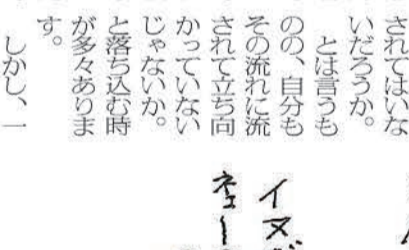 されてはいな
いだろうか。
　とは言うも
のの、自分も
その流れに流
されて立ち向
かっていない
じゃないか。
と落ち込む時
が多々ありま
す。
　しかし、一
イヌ
ネュー